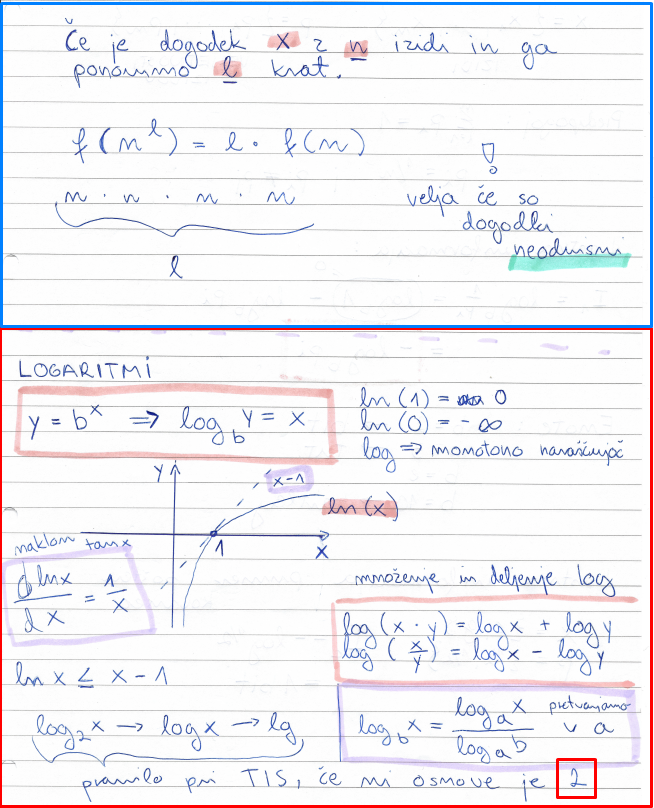 Če je dogodek X z n izidi in ga
ponovimo l krat.
f(n^l) = l · f(n)
n · n · n · n
l
!
velja če so
dogodki
neodvisni
LOGARITMI
y = b^x ⇒ log_b y = x
ln(1) = 0
ln(0) = -∞
log ⇒ monotono naraščujoč
y
x-1
ln(x)
1
x
naklon tan x
d ln x / d x = 1/x
množenje in deljenje log
log(x · y) = log x + log y
log(x/y) = log x - log y
ln x ≤ x - 1
log_b x = log_a x / log_a b
pretvarjamo
v a
log_2 x → log x → lg
pravilo pri TIS, če ni osnove je 2